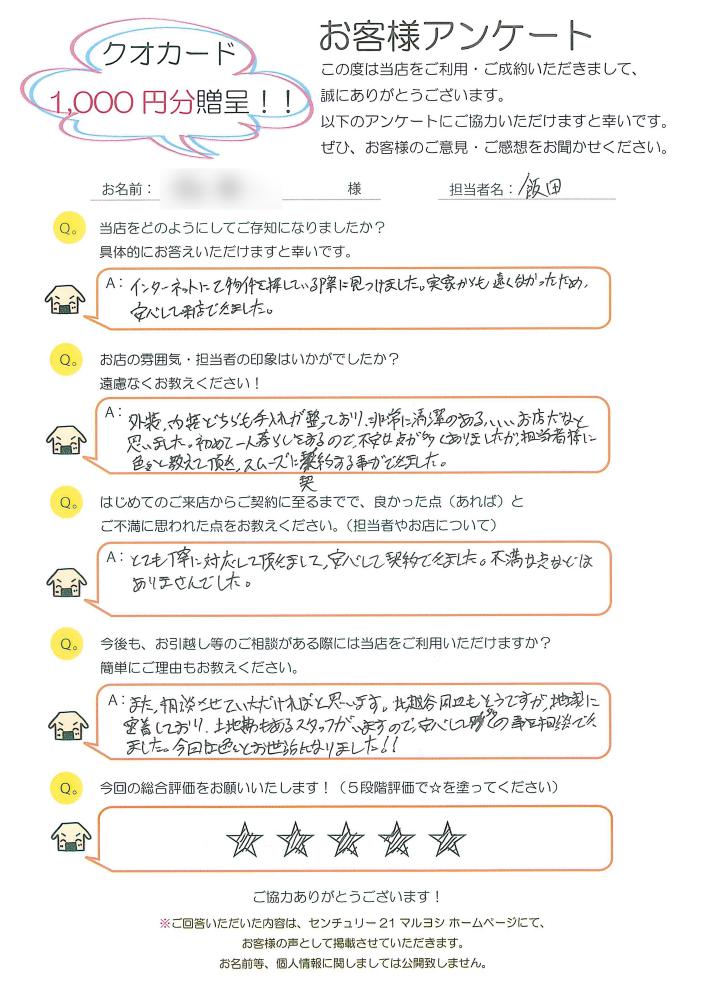 クオカード
1,000円分贈呈！！
お客様アンケート
この度は当店をご利用・ご成約いただきまして、
誠にありがとうございます。
以下のアンケートにご協力いただけますと幸いです。
ぜひ、お客様のご意見・ご感想をお聞かせください。
お名前： 様 担当者名：飯田
Q。 当店をどのようにしてご存知になりましたか？
具体的にお答えいただけますと幸いです。
A： インターネットにて物件を探している際に見つけました。実家からも遠くなかったため、
安心して来店できました。
Q。 お店の雰囲気・担当者の印象はいかがでしたか？
遠慮なくお教えください！
A： 外装、内装どちらも手入れが整っており、非常に清潔のある、いいお店だなと
思いました。初めて一人暮らしをするので、不安な点が多くありましたが、担当者様に
色々と教えて頂き、スムーズに契約する事ができました。
Q。 はじめてのご来店からご契約に至るまでで、良かった点（あれば）と
ご不満に思われた点をお教えください。（担当者やお店について）
A： とても丁寧に対応して頂きまして、安心して契約できました。不満な点などは
ありませんでした。
Q。 今後も、お引越し等のご相談がある際には当店をご利用いただけますか？
簡単にご理由もお教えください。
A： また、相談させていただければと思います。北越谷周辺もそうですが、地域に
密着しており、土地勘もあるスタッフがいますので、安心して 事を相談でき
ました。今回は色々とお世話になりました！！
Q。 今回の総合評価をお願いいたします！（５段階評価で☆を塗ってください）
★ ★ ★ ★ ★
ご協力ありがとうございます！
※ご回答いただいた内容は、センチュリー21マルヨシ ホームページにて、
お客様の声として掲載させていただきます。
お名前等、個人情報に関しましては公開致しません。